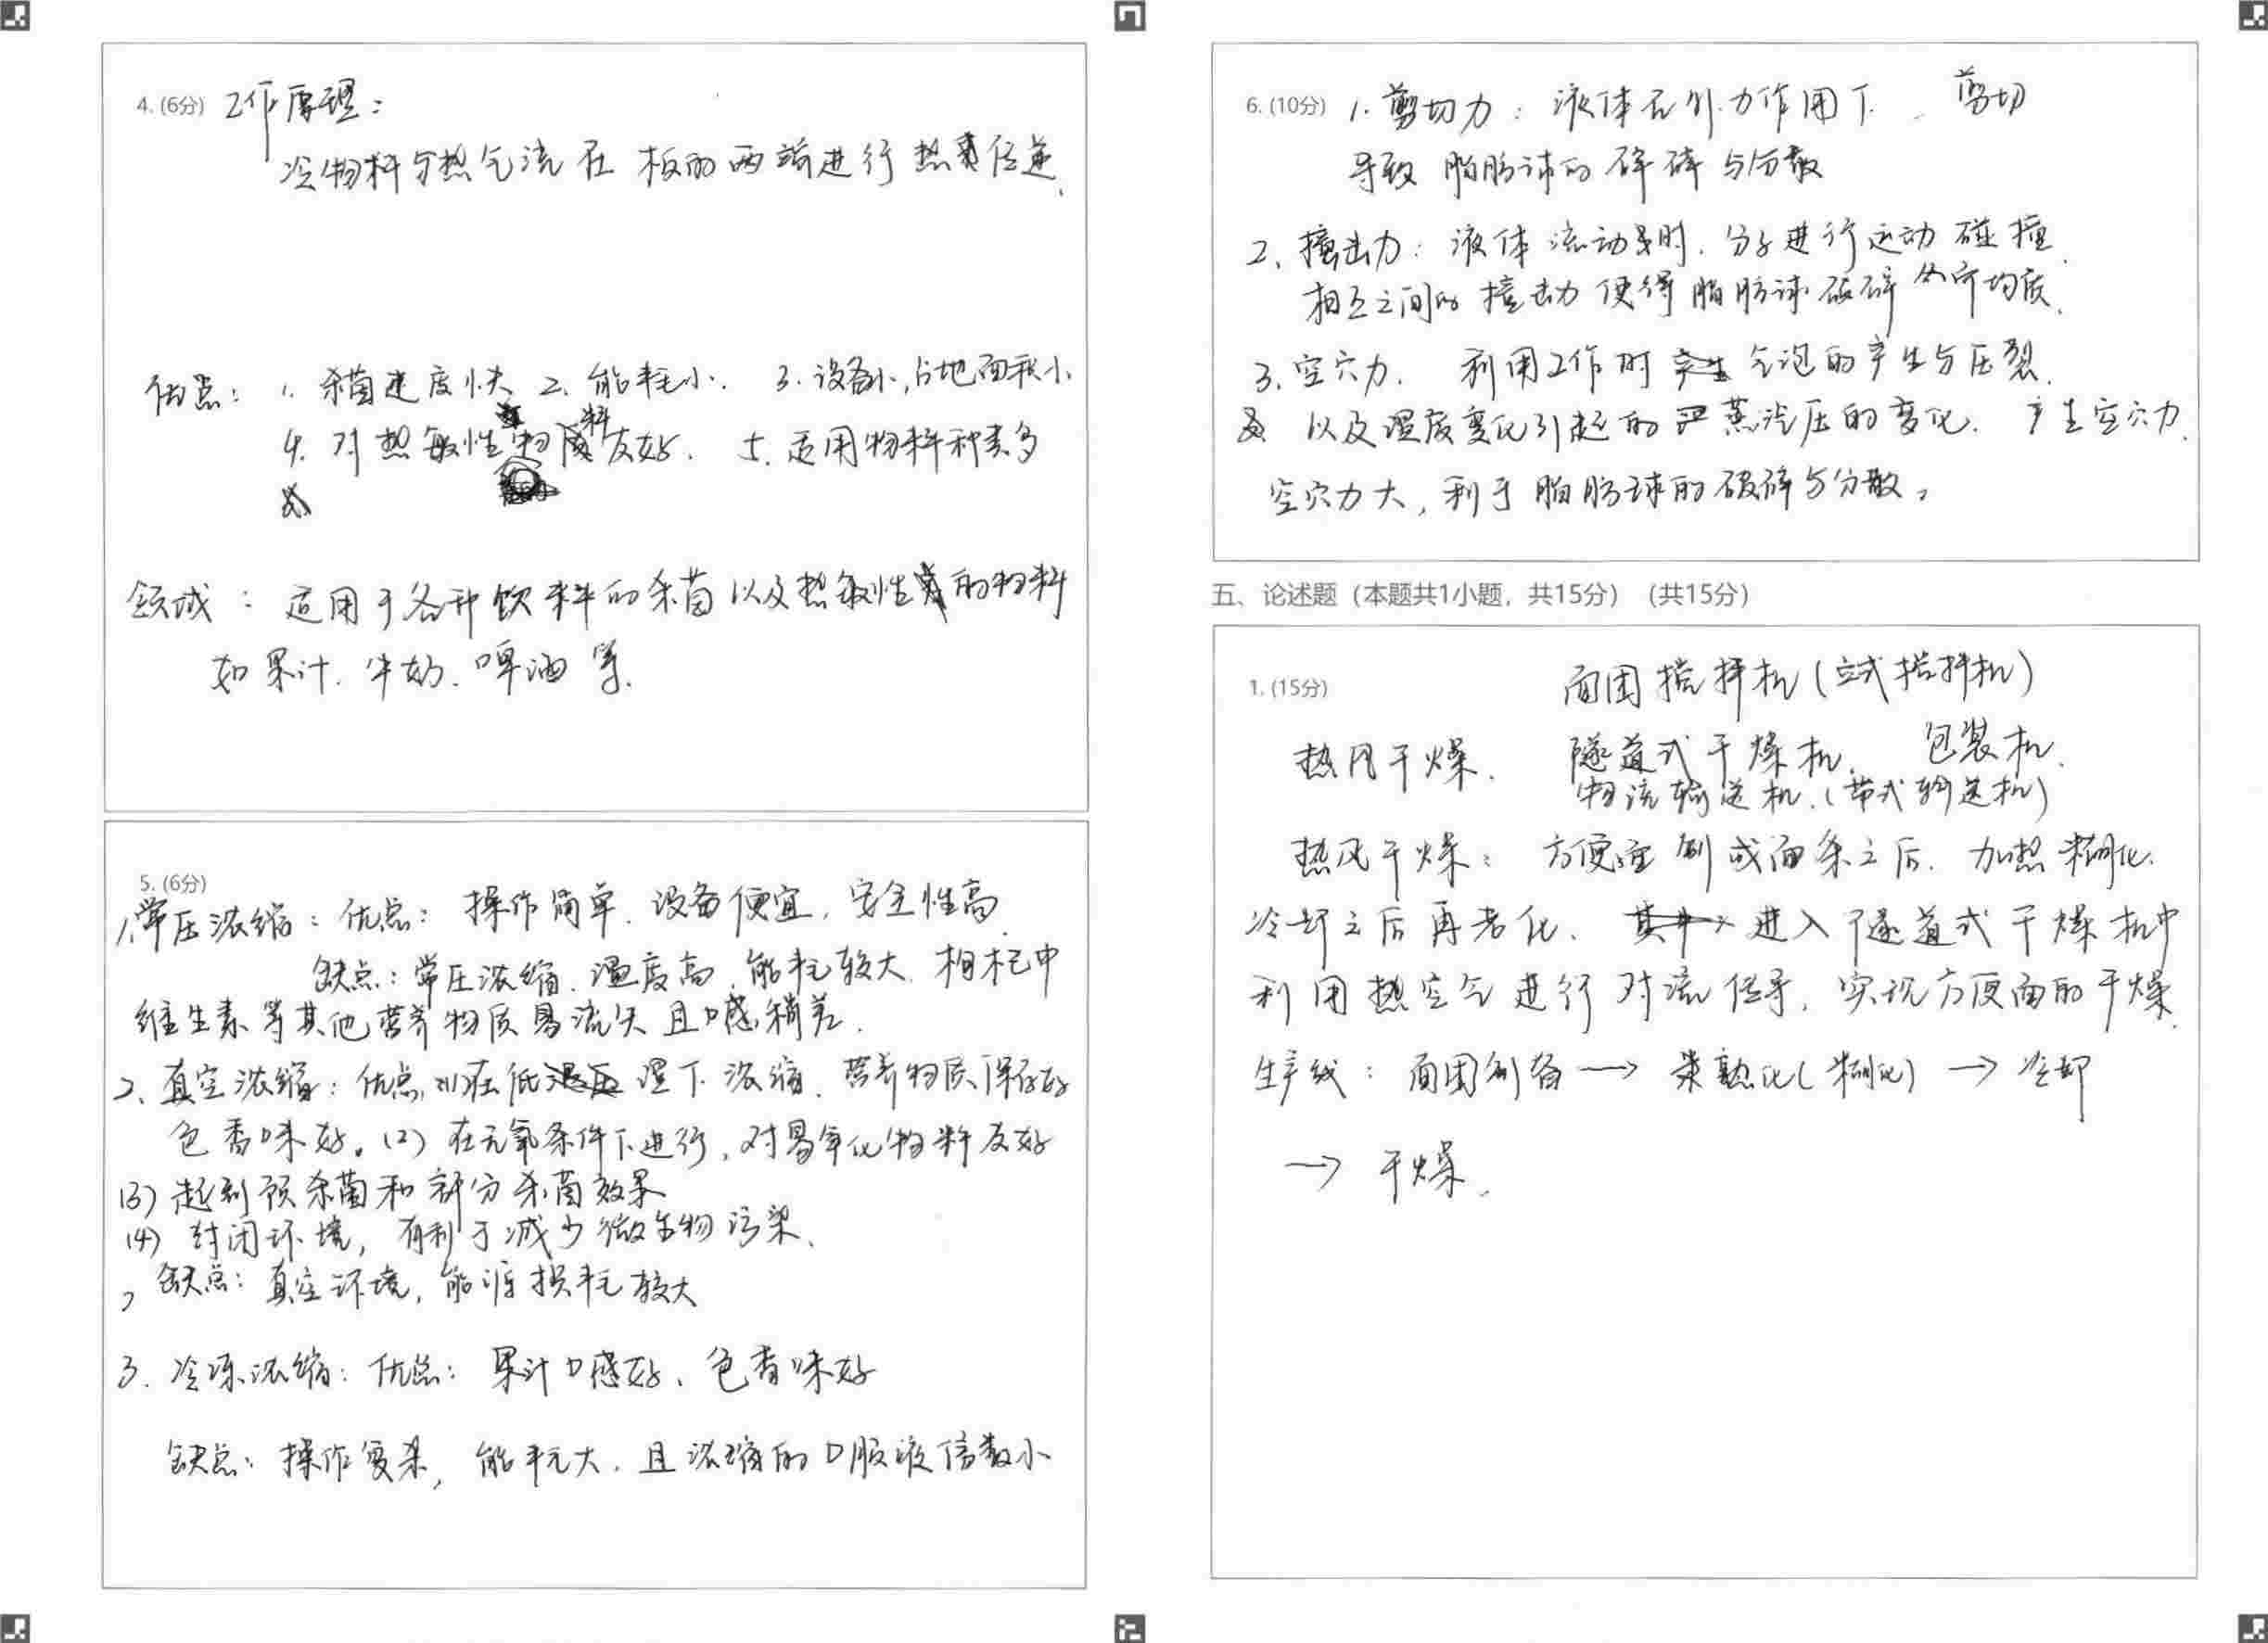 4. (6分) 工作原理：
冷物料与热气流在板的两端进行热传递.
优点： 1. 杀菌速度快 2. 能耗小. 3. 设备小,占地面积小
4. 对热敏性物料友好. 5. 适用物料种类多
领域： 适用于各种饮料的杀菌以及热敏性的物料
如果汁. 牛奶. 啤酒等.
5. (6分)
1.常压浓缩：优点： 操作简单. 设备便宜, 安全性高.
缺点：常压浓缩. 温度高, 能耗较大. 枸杞中
维生素等其他营养物质易流失且口感稍差.
2. 真空浓缩：优点:(1)在低温下浓缩. 营养物质保存好
色香味好。(2) 在无氧条件下进行, 对易氧化物料友好
(3) 起到预杀菌和部分杀菌效果
(4) 封闭环境, 有利于减少微生物污染.
缺点：真空环境, 能源损耗较大
3. 冷冻浓缩：优点： 果汁口感好、色香味好
缺点：操作复杂, 能耗大. 且浓缩的口服液倍数小
6. (10分) 1. 剪切力：液体在外力作用下. 剪切
导致脂肪球的碎碎与分散
2. 撞击力：液体流动时. 分子进行运动碰撞.
相互之间的撞击力使得脂肪球破碎 均质.
3. 空穴力. 利用工作时气泡的产生与压裂.
以及温度变化引起的蒸汽压的变化. 产生空穴力.
空穴力大, 利于脂肪球的破碎与分散。
五、论述题（本题共1小题，共15分）（共15分）
1. (15分) 面团搅拌机(立式搅拌机)
热风干燥. 隧道式干燥机. 包装机.
物流输送机.(带式输送机)
热风干燥： 方便面制成面条之后. 加热糊化.
冷却之后再老化. 进入隧道式干燥机中
利用热空气进行对流传导, 实现方便面的干燥.
生产线： 面团制备 → 蒸熟化(糊化) → 冷却
→ 干燥.